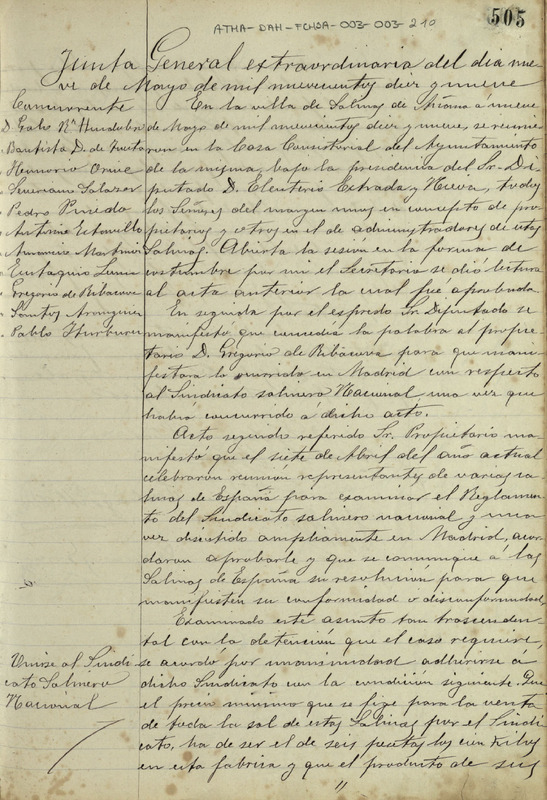 ATHA-DAH-FCHSA-003-003-210
505
Junta General extraordinaria del dia nue-
ve de Mayo de mil nuevecientos diez y nueve
Concurrente
D. Gabo Rz Huidobro
Bautista D. de
Honorio Orive
Severiano Salazar
Pedro Pinedo
Antonio Estavillo
Amancio Martinez
Eustaquio
Gregorio de Ribacova
Santos
Pablo Iturburu
En la villa de Salinas de Añana á nueve
de Mayo de mil nuevecientos diez y nueve, se reunie
ron en la Casa Consistorial del Ayuntamiento
de la misma, bajo la presidencia del Sr. Di-
putado D. Eleuterio Estrada y Nieva, todos
los Señores del margen unos en concepto de pro-
pietarios y otros en el de administradores de estas
Salinas. Abierta la sesión en la forma de
costumbre por mi el Secretario se dió lectura
al acta anterior la cual fue aprobada.
En seguida por el expresado Sr. Diputado se
manifestó que concedia la palabra al propie-
tario D. Gregorio de Ribacova para que mani-
festara lo ocurrido en Madrid con respecto
al Sindicato salinero Nacional una vez que
habia concurrido á dicho acto.
Acto segundo referido Sr. Propietario ma-
nifestó que el siete de Abril del año actual
celebraron reunión representantes de varias sa-
linas de España para examinar el Reglamen-
to del Sindicato salinero nacional y una
vez discutido ampliamente en Madrid, acor-
daron aprobarle y que se comunique á las
Salinas de España su resolución para que
manifiesten su conformidad o disconformidad,
Examinado este asunto tan trascenden-
tal con la detención que el caso requiere,
Unirse al Sindi-
cato Salinero
Nacional
se acordó por unanimidad adherirse á
dicho Sindicato con la condición siguiente. Que
el precio minimo que se fije para la venta
de toda la sal de estas Salinas por el Sindi-
cato, ha de ser el de seis pesetas los cien kilos
en esta fabrica y que el producto de sus